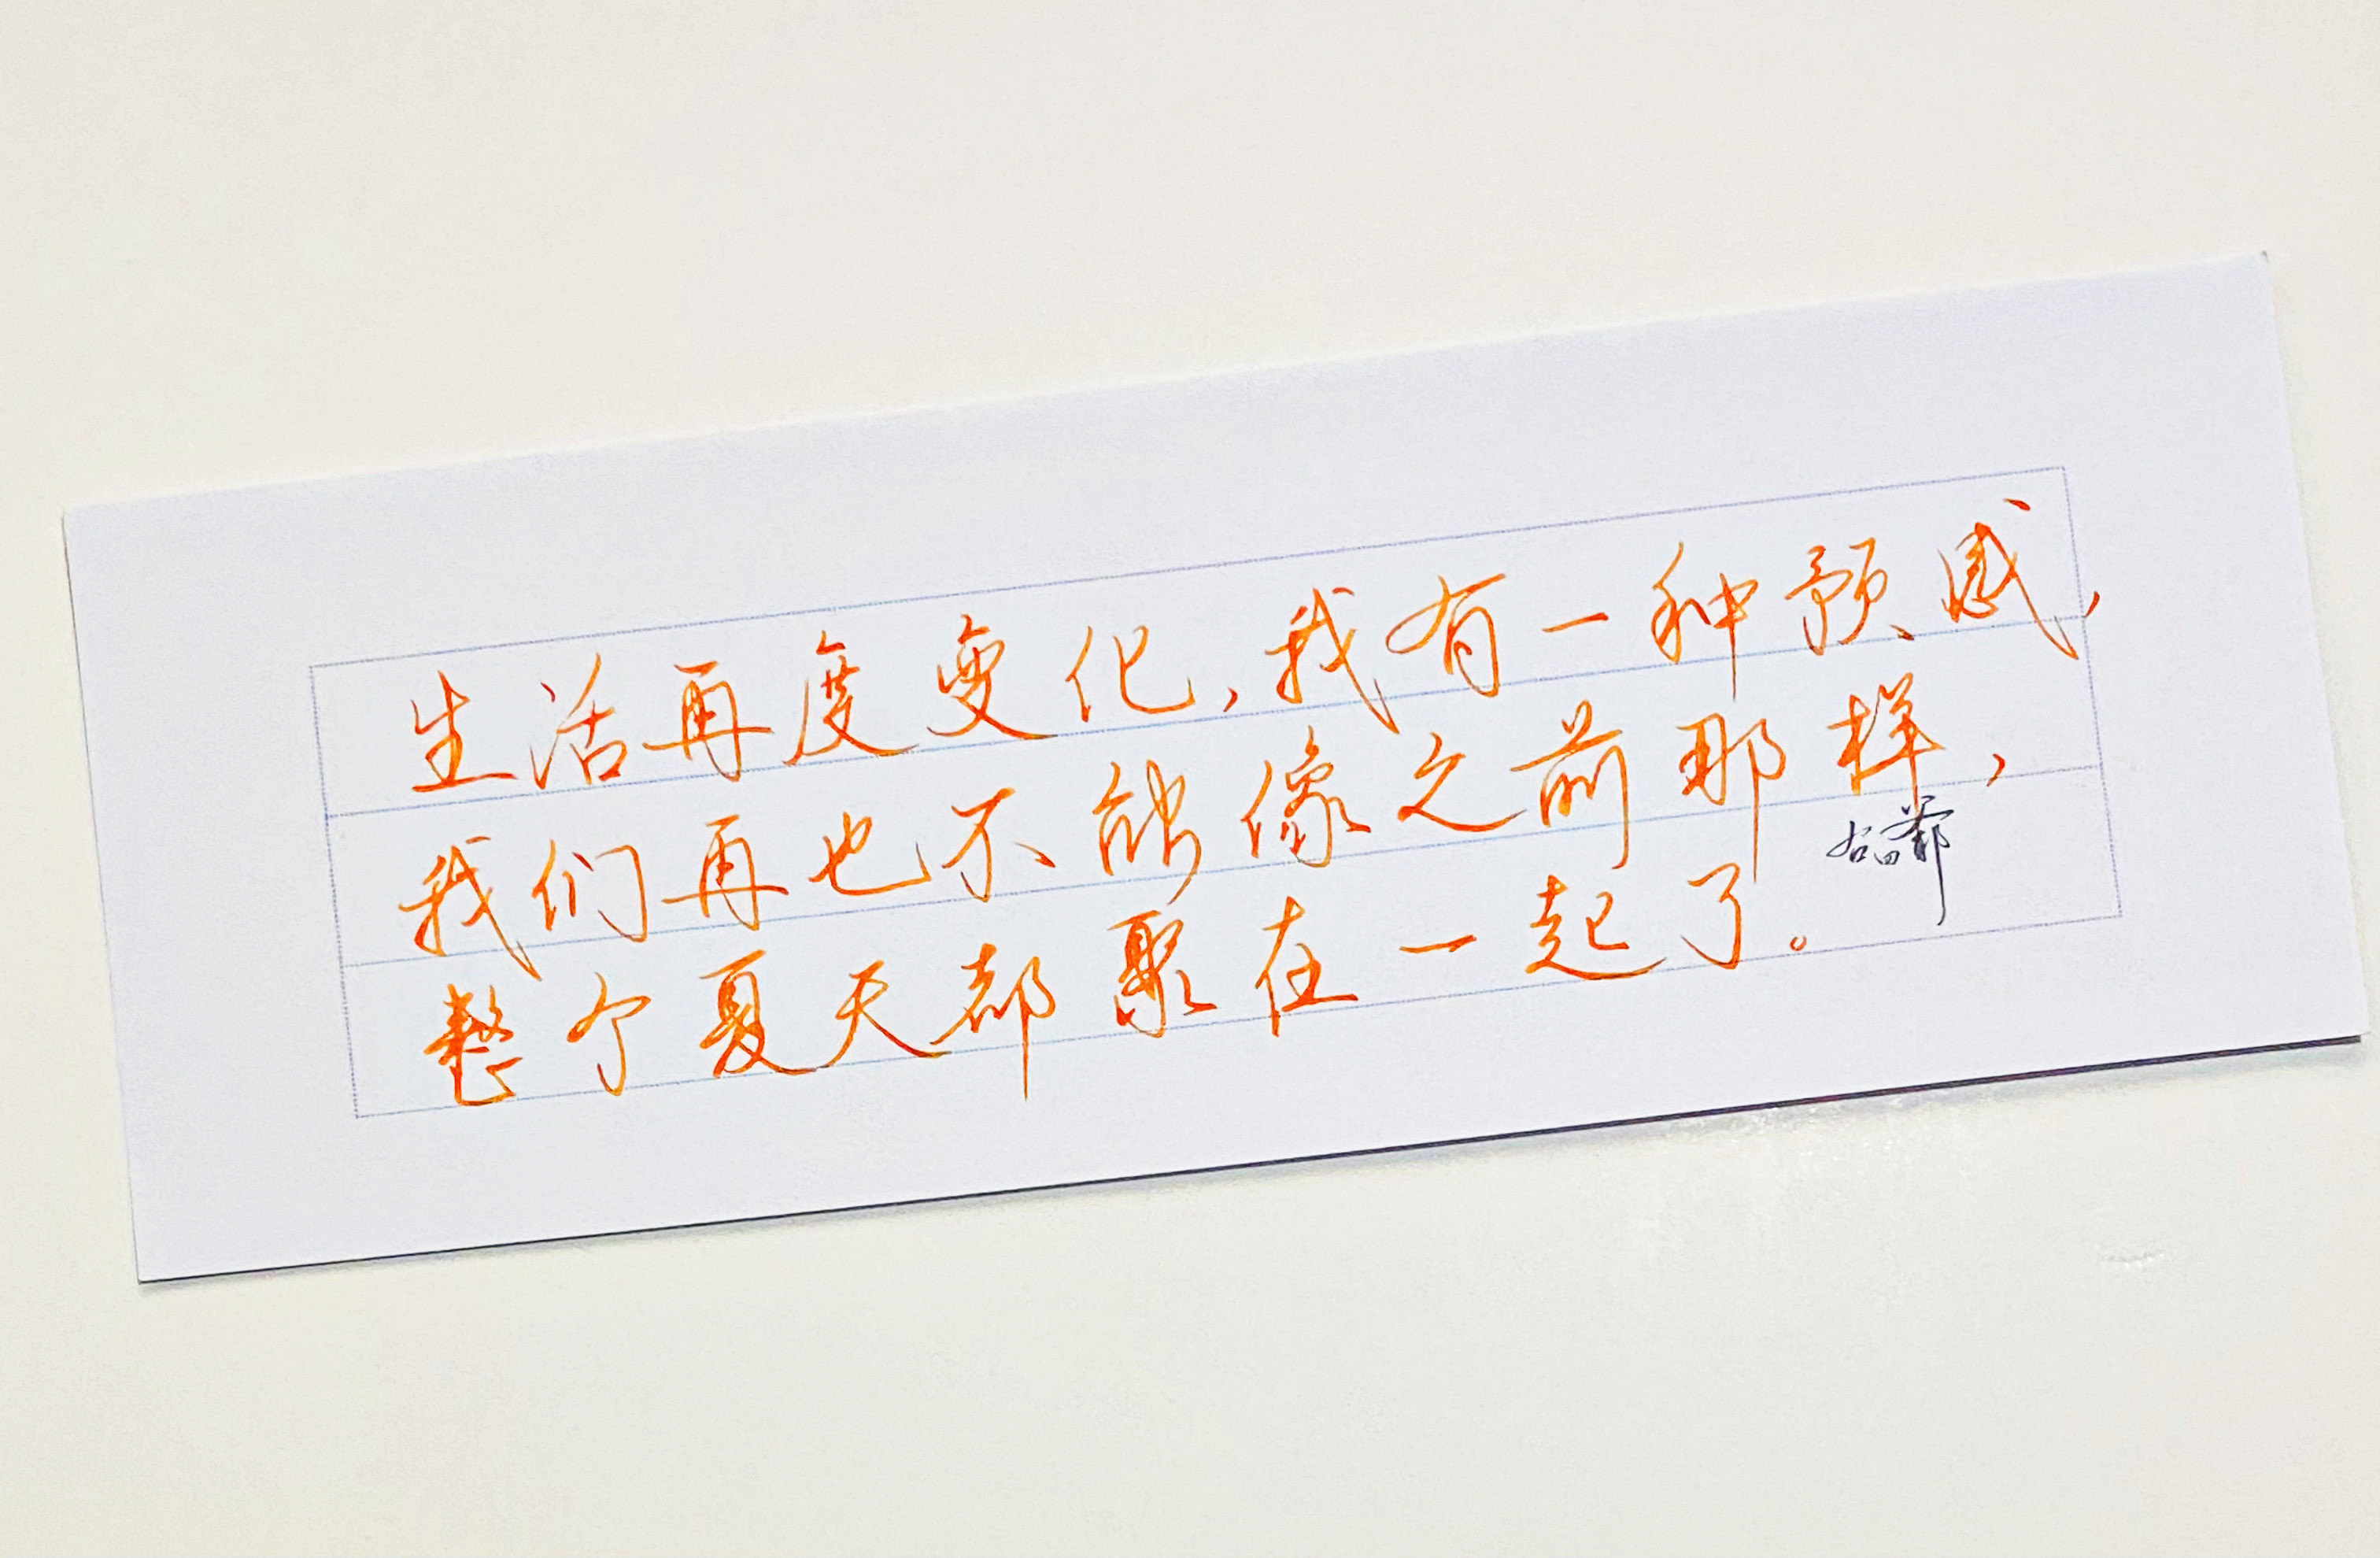 生活再度变化,我有一种预感,
我们再也不能像之前那样,
整个夏天都聚在一起了。